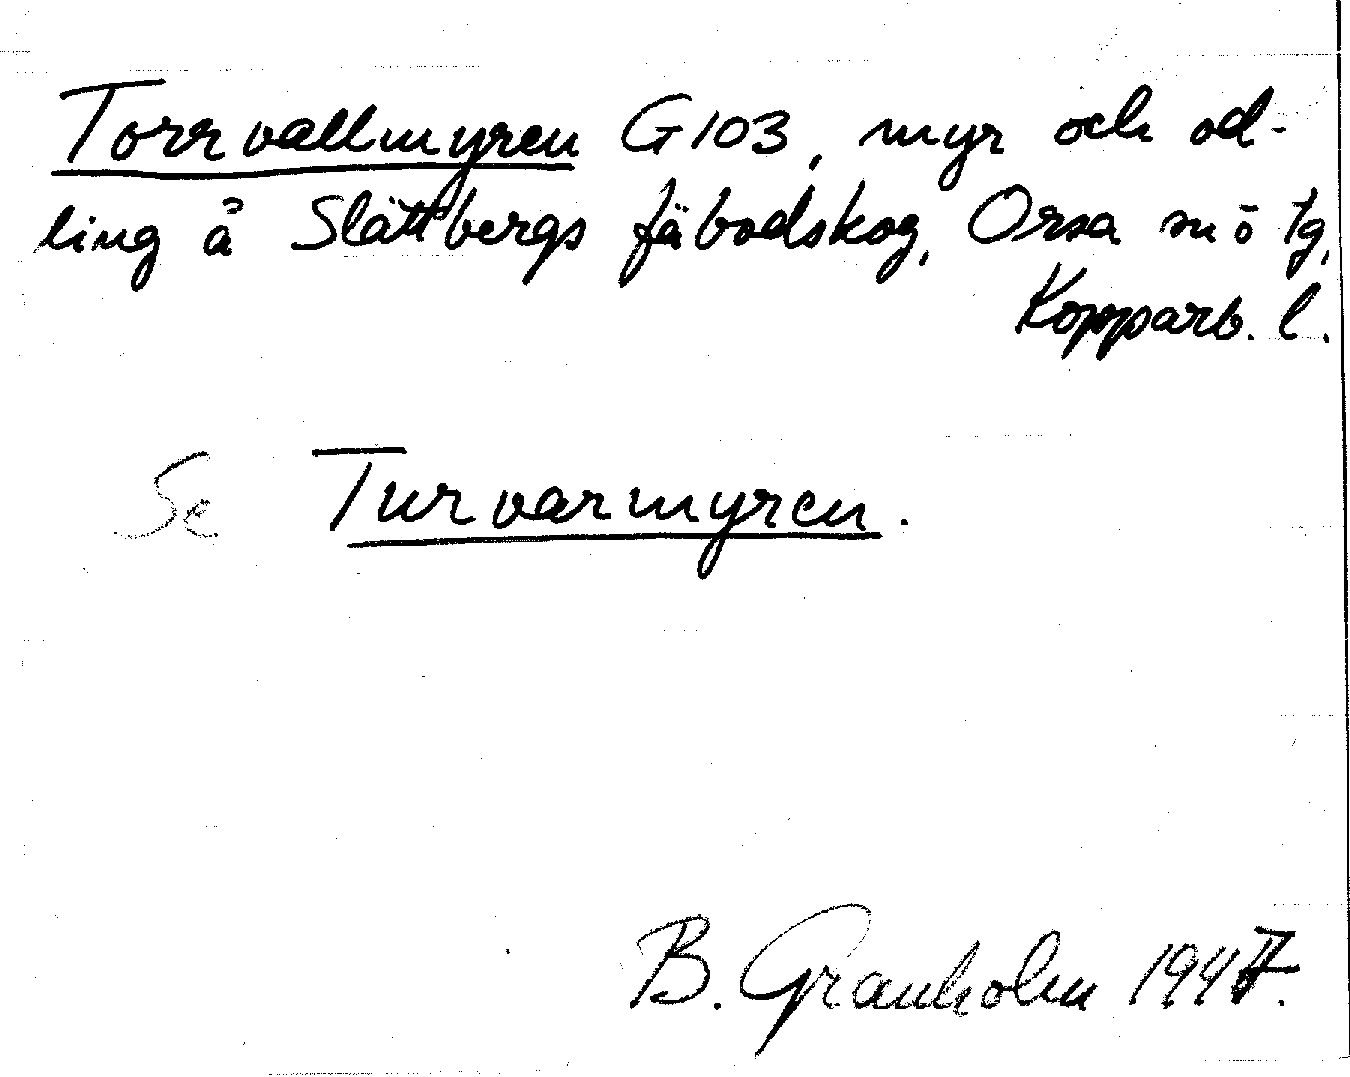 Torrvallmyren G103, myr och od-
ling å Slättbergs fäbodskog, Orsa snö tg,
Kopparb. l.
Se Turvarmyren.
B. Granholm 1947.